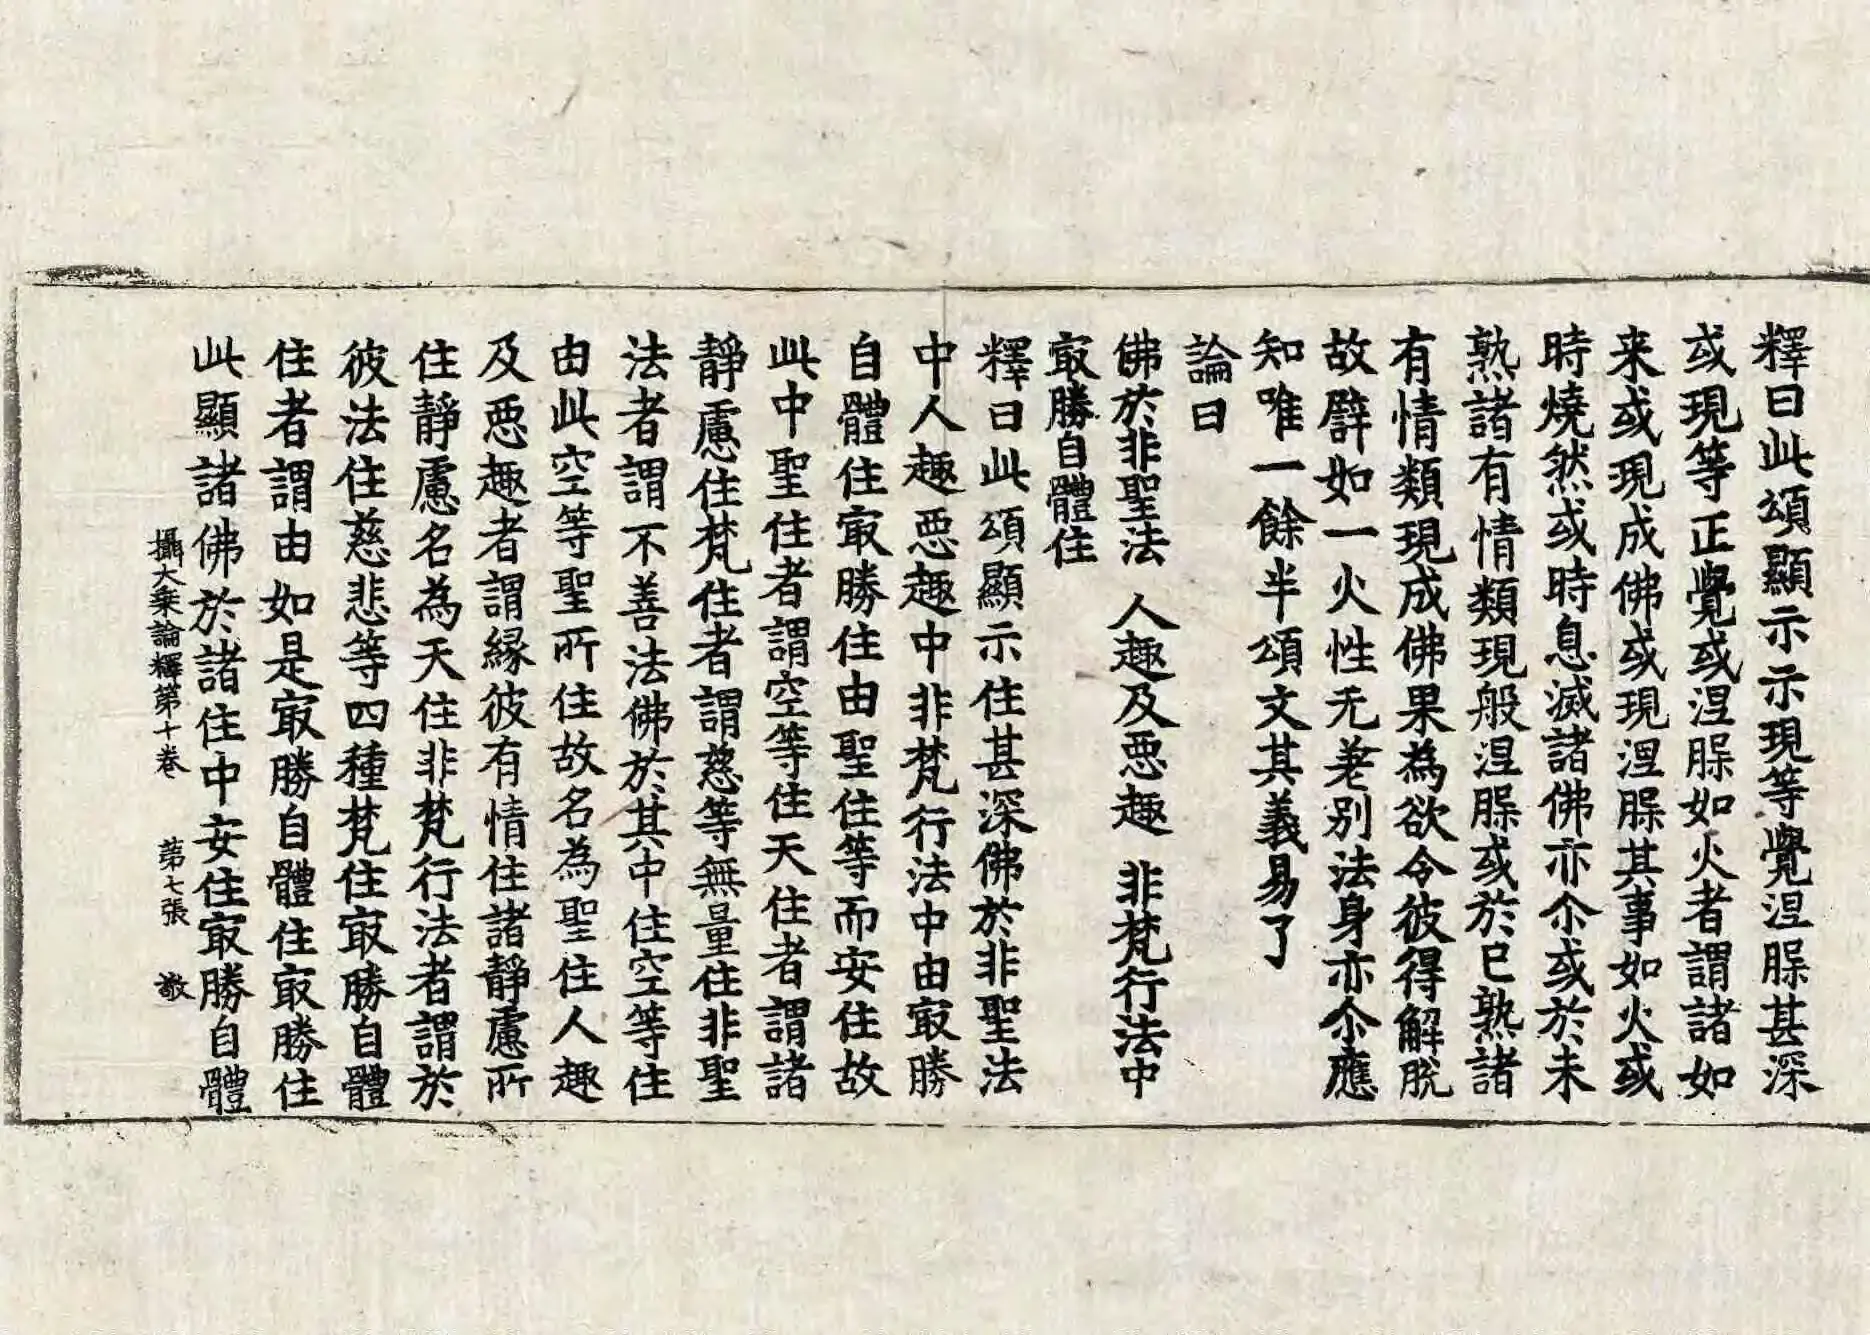 釋曰此頌顯示示現等覺涅槃甚深
或現等正覺或涅槃如火者謂諸如
来或現成佛或現涅槃其事如火或
時燒然或時息滅諸佛亦尒或於未
熟諸有情類現般涅槃或於已熟諸
有情類現成佛果為欲令彼得解脫
故辟如一火性无差別法身亦尒應
知唯一餘半頌文其義易了
論曰
佛於非聖法 人趣及惡趣 非梵行法中
㝡勝自體住
釋曰此頌顯示住甚深佛於非聖法
中人趣惡趣中非梵行法中由㝡勝
自體住㝡勝住由聖住等而安住故
此中聖住者謂空等住天住者謂諸
靜慮住梵住者謂慈等無量住非聖
法者謂不善法佛於其中住空等住
由此空等聖所住故名為聖住人趣
及惡趣者謂緣彼有情住諸靜慮所
住靜慮名為天住非梵行法者謂於
彼法住慈悲等四種梵住㝡勝自體
住者謂由如是㝡勝自體住㝡勝住
此顯諸佛於諸住中安住㝡勝自體
攝大乘論釋第十卷 第七張 敬